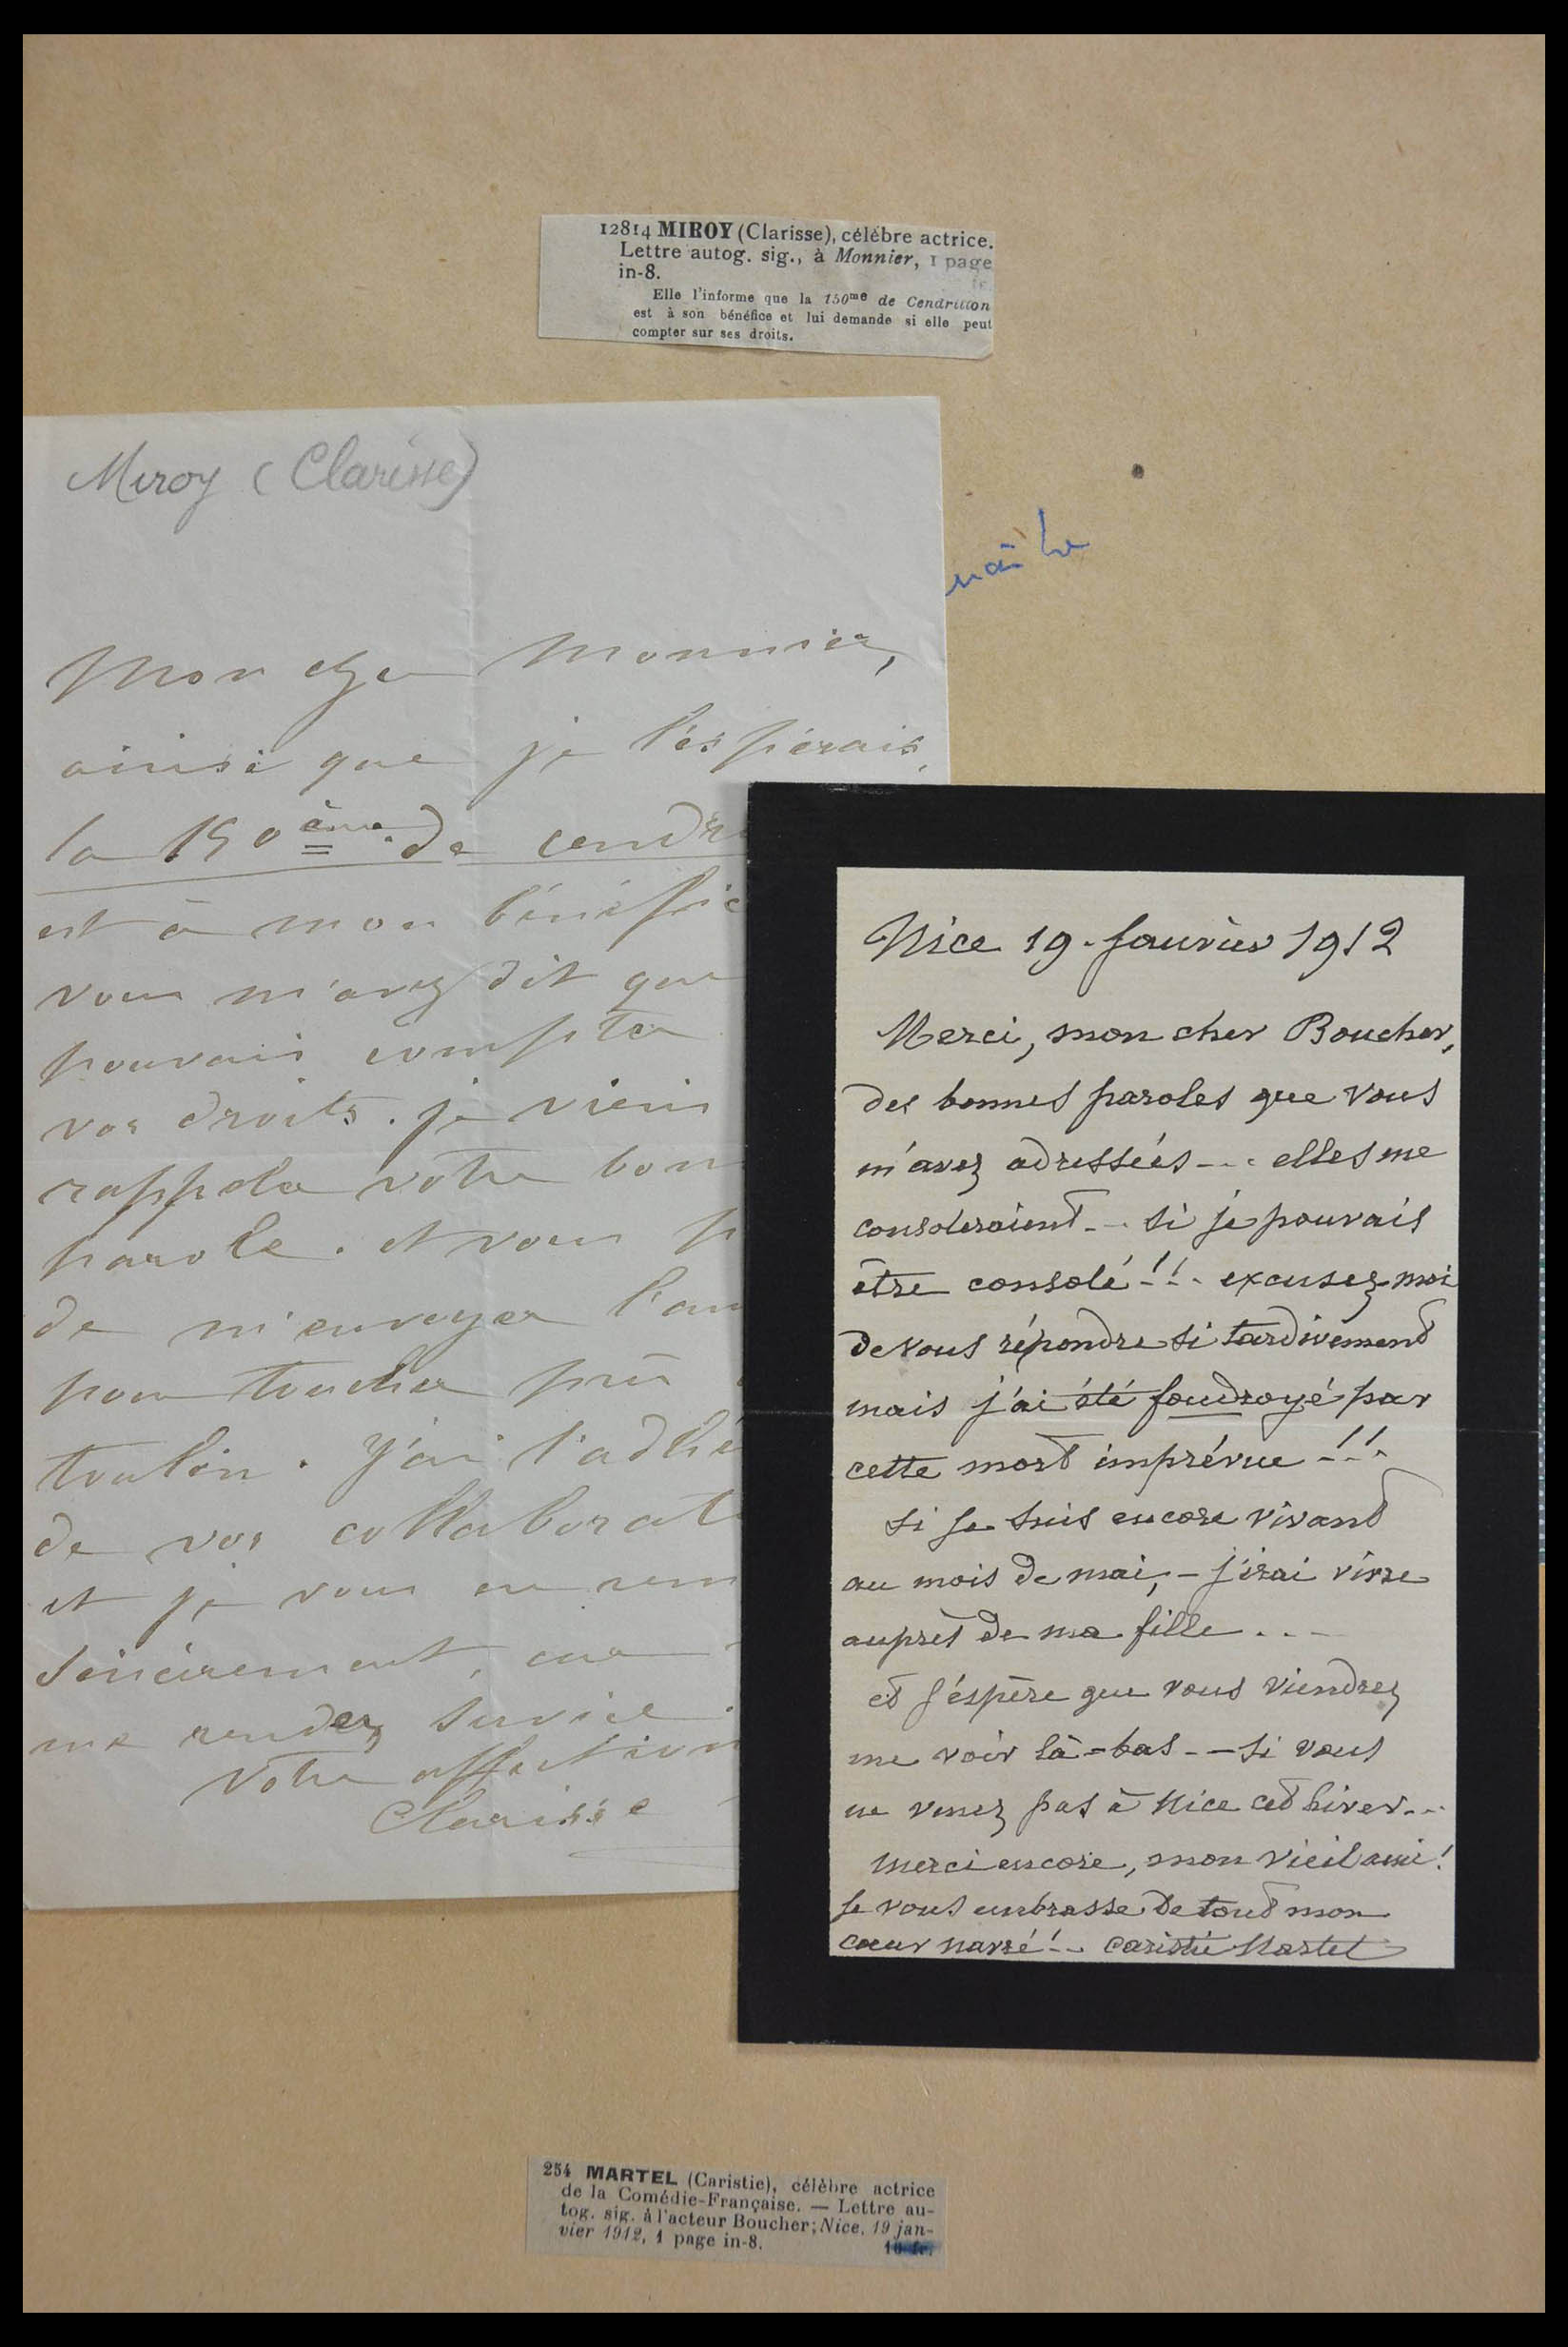 12814 MIROY (Clarisse), célèbre actrice.
Lettre autog. sig., à Monnier, 1 page
in-8.
Elle l'informe que la 150me de Cendrillon
est à son bénéfice et lui demande si elle peut
compter sur ses droits.
Miroy (Clarisse)
Mon cher Monnier,
ainsi que je l'espérais,
la 150ème de cendr
est à mon bénéfic
vous m'avez dit que
pouvais compter
vos droits. je viens
rappeler votre bonn
parole. et vous p
de m'envoyer l'au
pour toucher
toulin. J'ai l'adhé
de vos collaborat
et je vous en rem
sincèrement, car
me rendez service.
Votre affection
Clarisse
Nice 19 - Janvier 1912
Merci, mon cher Boucher,
des bonnes paroles que vous
m'avez adressées - - - elles me
consoleraient - - - si je pouvais
être consolé !!! - excusez-moi
de vous répondre si tardivement
mais j'ai été foudroyé par
cette mort imprévue !!!
Si je suis encore vivant
au mois de mai, - j'irai vivre
auprès de ma fille . . .
et j'espère que vous viendrez
me voir là-bas - - si vous
ne venez pas à Nice cet hiver - - -
Merci encore, mon vieil ami !
Je vous embrasse de tout mon
cœur navré ! - - Caristie Martel
254 MARTEL (Caristie), célèbre actrice
de la Comédie-Française. — Lettre au-
tog. sig. à l'acteur Boucher; Nice, 19 jan-
vier 1912, 1 page in-8. 10 fr.